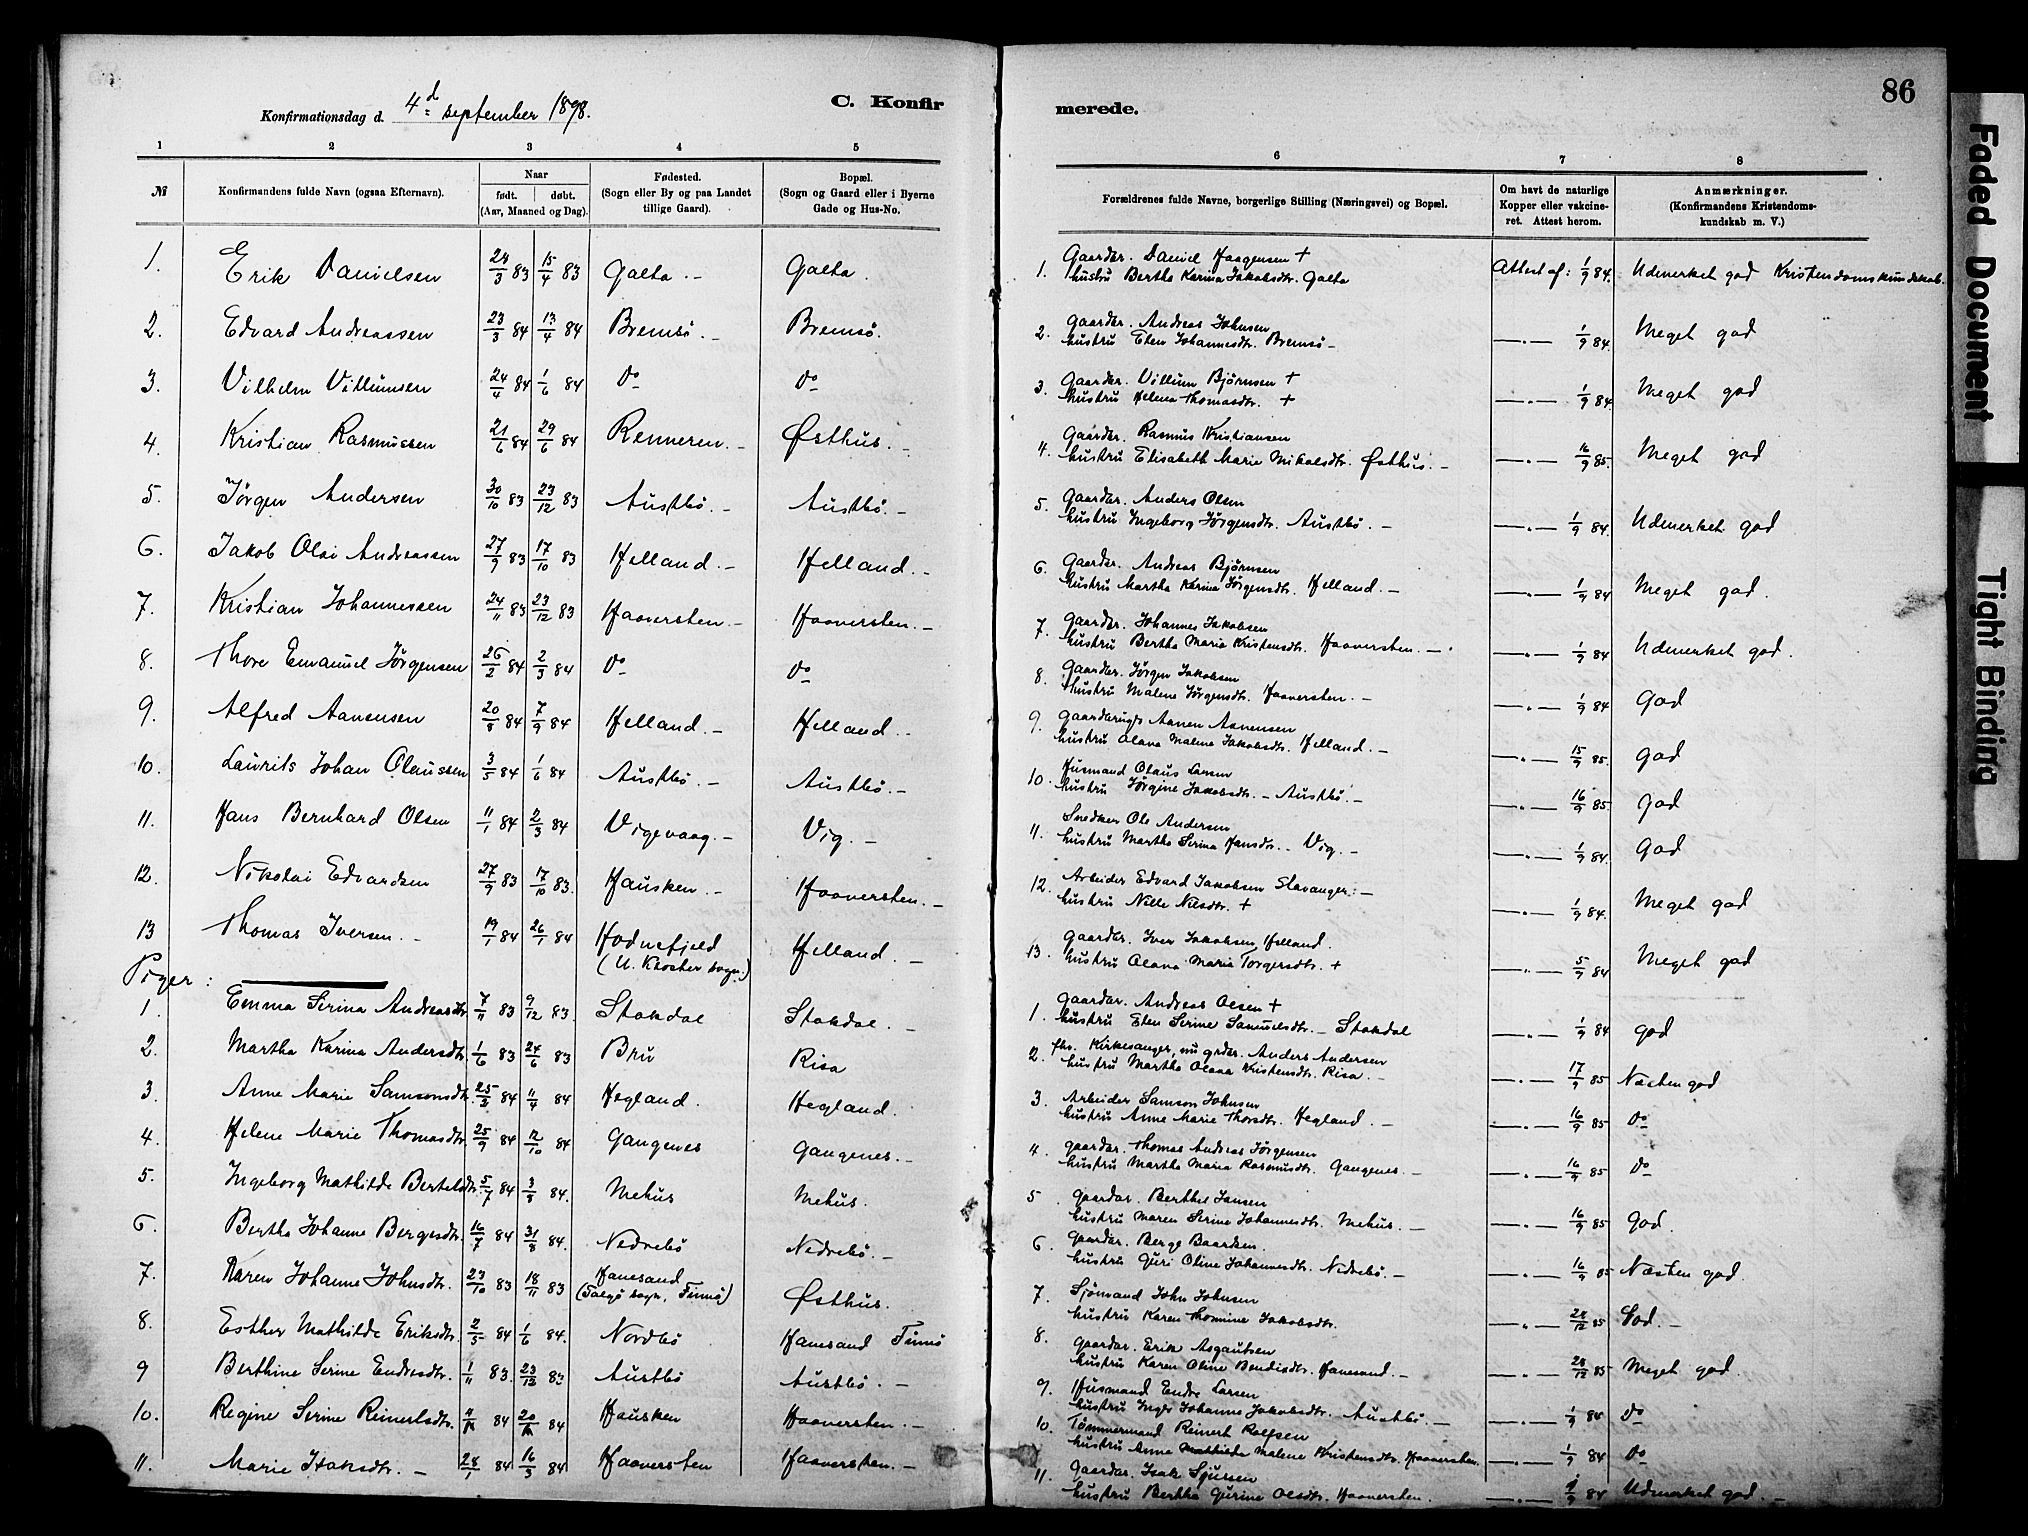 86
Faded Document
Tight Binding
Konfirmationsdag d. 4d september 1898.
C. Konfir
merede.
1 2 3 4 5
6 7 8
№ Konfirmandens fulde Navn (ogsaa Efternavn). Naar født. døbt. (Aar, Maaned og Dag). Fødested. (Sogn eller By og paa Landet tillige Gaard). Bopæl. (Sogn og Gaard eller i Byerne Gade og Hus-No.
Forældrenes fulde Navne, borgerlige Stilling (Næringsvei) og Bopæl. Om havt de naturlige Kopper eller vakcineret. Attest herom. Anmærkninger. (Konfirmandens Kristendomskundskab m. V.)
1. Erik Danielsen 24/3 83 15/4 83 Galta.- Galta.
2. Edvard Andreassen 23/3 84 13/4 84 Bremsö.- Bremsö.
3. Vilhelm Villumsen 24/4 84 1/6 84 do do
4. Kristian Rasmussen 21/6 84 29/6 84 Renneren.- Østhus.-
5. Jörgen Andersen 30/10 83 23/12 83 Austbö.- Austbö.-
6. Jakob Olai Andreassen 27/9 83 17/10 83 Helland.- Helland.-
7. Kristian Johannessen 24/11 83 23/12 83 Haaversten.- Haaversten.-
8. Thore Emanuel Jörgensen 26/2 84 2/3 84 do do
9. Alfred Aanensen 20/8 84 7/9 84 Helland.- Helland.-
10. Laurits Johan Olaussen 3/5 84 1/6 84 Austbö.- Austbö.-
11. Hans Bernhard Olsen 11/1 84 2/3 84 Vigevaag.- Vig.-
12. Nikolai Edvardsen 27/9 83 17/10 83. Hausken.- Haaversten.-
13 Thomas Iversen.- 19/1 84 26/1 84 Hodnefjeld Helland.-
(U. Kloster sogn.)
Piger:
1. Emma Serina Andreasdtr. 7/11 83 9/12 83. Stakdal Stakdal.-
2. Martha Karina Andersdtr. 1/6 83 24/6 83 Bru Risa
3. Anne Marie Samsonsdtr. 25/2 84 11/4 84 Hegland. Hegland.
4. Helene Marie Thomasdtr. 25/9 84 12/10 84 Gangenes Gangenes.-
5. Ingeborg Mathilde Bertelsdtr. 5/7 84 3/8 84. Mehus Mehus.
6. Bertha Johanne Bergesdtr. 16/7 84 31/8 84. Nedrebö Nedrebö.-
7. Karen Johanne Johnsdtr. 23/10 83 18/11 83 Hanesand (Talgö sogn, Finnö) Østhus.
8. Esther Mathilde Eriksdtr. 2/5 84 1/6 84. Nordbö Hanesand Finnö
9 Berthine Serine Endresdtr. 1/11 83. 23/12 83 Austbö Austbö.-
10. Regine Serine Reinertsdtr. 84 84 Hausken Haaversten.-
11. Marie Isaksdtr.- 28/1 84 16/3 84 Haaversten Haaversten.-
1. Gaardbr. Daniel Haagensen +
hustru Bertha Karina Jakobsdtr. Galta Attest af: 1/9 84. Udmerket god Kristendomskundskab.
2. Gaardbr. Andreas Johnsen
hustru Elen Johannesdtr. Bremsö - —.— 1/9 84. Meget god
3. Gaardbr. Villum Bjørnsen +
hustru Helena Thomasdtr. + —.— 1/9 84. Meget god
4. Gaardbr. Rasmus Kristiansen
hustru Elisabeth Marie Nikolsdtr. Østhus.- —.— 16/9 85. Meget god
5. Gaardbr. Anders Olsen
hustru Ingeborg Jörgensdtr. Austbö.- —.— 1/9 84. Udmerket god
6. Gaardbr. Andreas Bjørnsen
hustru Martha Karina Jörgensdtr. Helland.- —.— 1/9 84 Meget god.
7. Gaardbr. Johannes Jakobsen
hustru Bertha Maria Kristensdtr. Haaversten.- —.— 1/9 84 Udmerket god.
8. Gaardbr. Jörgen Jakobsen
hustru Malene Jörgensdtr. Haaversten.- —.— 1/9 84 God
9. Gaardbrugr Aanen Aanensen
hustru Olava Malene Jakobsdtr. Helland.- —.— 15/9 85. God
10. Husmand Olaus Larsen
hustru Jörgine Jakobsdtr.- Austbö.- —.— 16/9 85 God
11. Snedker Ole Andersen
hustru Martha Serina Hansdtr.- Vig.- —.— 1/9 84. God
12. Arbeider Edvard Jakobsen Stavanger.-
hustru Nille Nilsdtr. + —.— 1/9 84. Meget god
13. Gaardbr. Iver Jakobsen, Helland.
hustru Olava Maria Torgersdtr. + —.— 5/9 84 Meget god
1. Gaardbr. Andreas Olsen +
hustru Elen Serine Samuelsdtr.- Stakdal —.— 1/9 84 God
2. fhv. Kirkesanger, nu grdbr. Anders Andersen
hustru Martha Olava Kristensdtr. Risa.- —.— 17/9 85 Næsten god
3. Arbeider Samson Johnsen
hustru Anne Marie Thorsdtr. Hegland.- —.— 16/9 85 do
4. Gaardbr. Thomas Andreas Jörgensen
hustru Martha Maria Rasmusdtr. Gangenes.- —.— 16/9 85 do
5. Gaardbr. Berthel Jansen
hustru Maren Serine Johannesdtr. Mehus.- —.— 16/9 85 God.
6. Gaardbr. Berge Baardsen.
hustru Guri Oline Johannesdtr. Nedrebö.- —.— 16/9 85 Næsten god.
7. Sjömand John Johnsen
hustru Karen Thomine Jakobsdtr. —.— 28/12 85 God.-
8. Gaardbr. Erik Asgautsen
hustru Karen Oline Bendixdtr. Hanesand.- —.— 28/12 85 Meget god.
9. Husmand Endre Larsen
hustru Inger Johanne Jakobsdtr. Austbö.- —.— 1/9 84 do
10. Tømmermand Reinert Rolfsen
hustru Anna Mathilde Malene Kristensdtr. Haaversten. —.— 1/9 84 do
11. Gaardbr. Isak Sjursen
hustru Bertha Gurine Olsdtr. Haaversten. —.— 1/9 84 Udmerket god.-